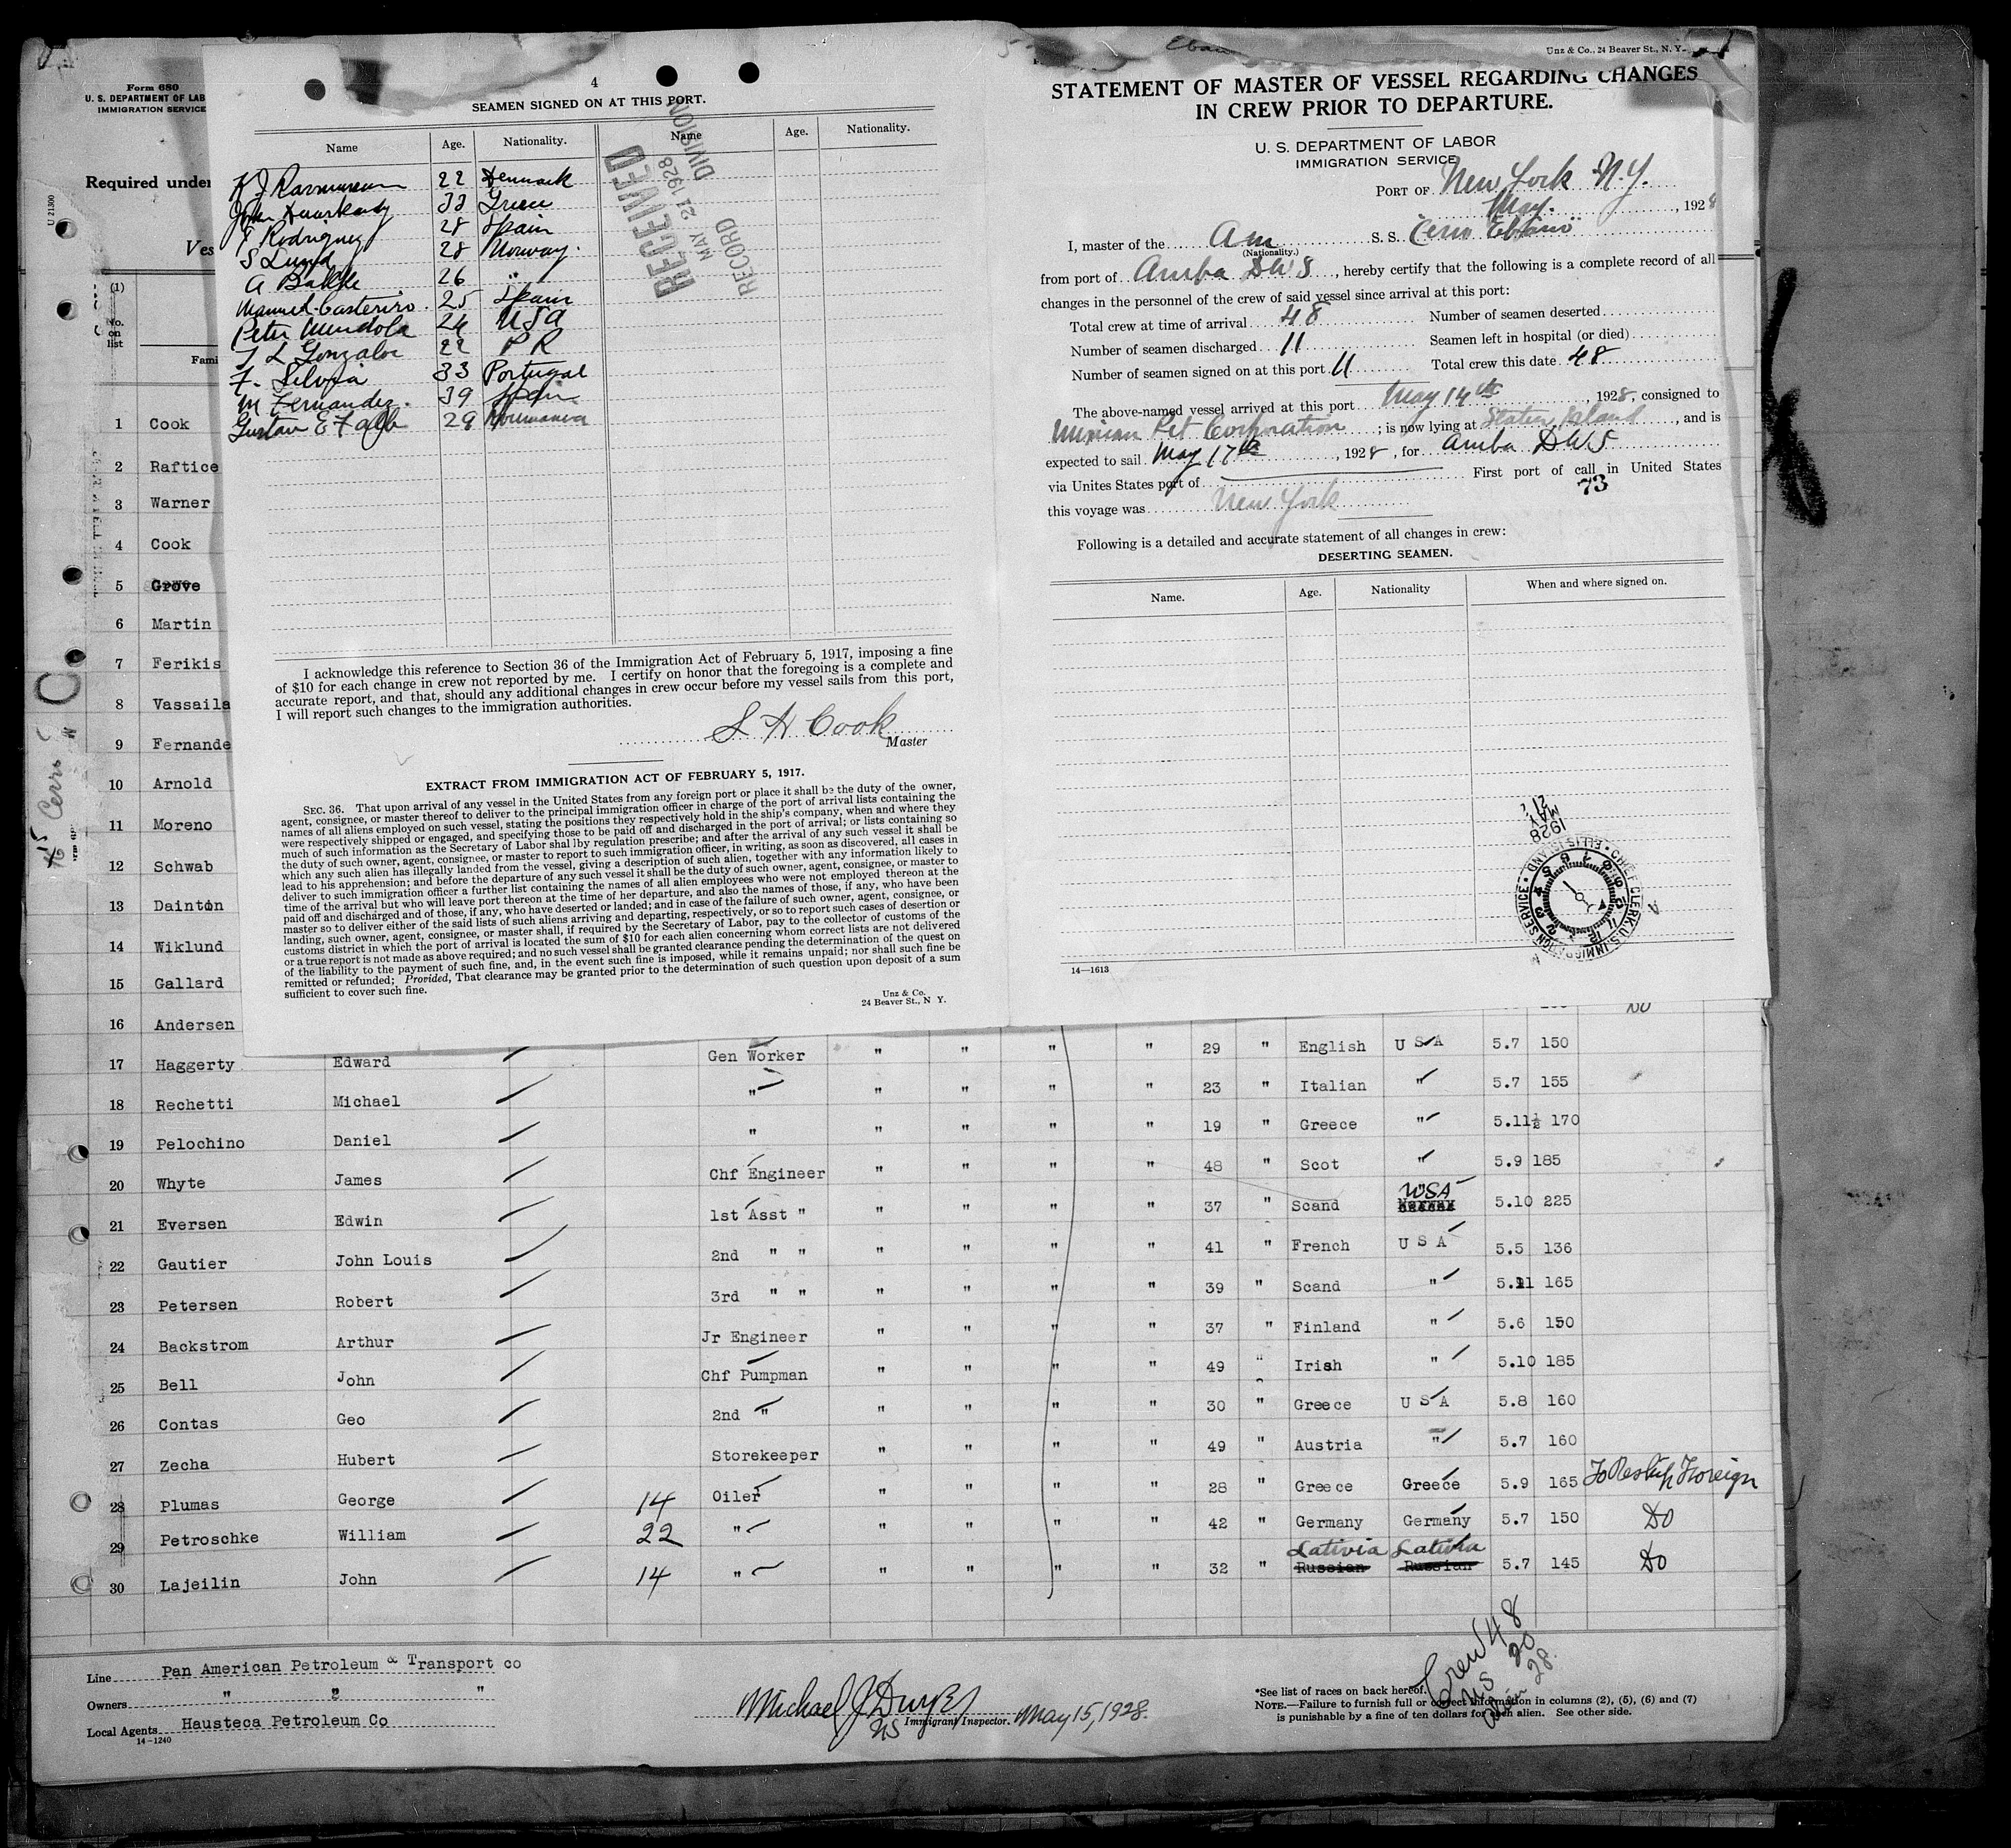 Form 680
U. S. DEPARTMENT OF LAB
IMMIGRATION SERVICE
U 21300
Required under
Ves
(1)
No.
on
list
Fami
4
SEAMEN SIGNED ON AT THIS PORT.
Name Age. Nationality. Name Age. Nationality.
K J Rasmussen 22 Denmark
John 33 Greece
F Rodriguez 28 Spain
S Lund 28 Norway.
A Bakke 26 "
Manuel Casteriro. 25 Spain
Peter Mendola 24 USA
J L Gonzalez 22 P R
F. Silvia 33 Portugal
M Fernandez. 39 Spain
Gustav E Falb 29 Roumania
RECEIVED
MAY 21 1928
RECORD DIVISION
I acknowledge this reference to Section 36 of the Immigration Act of February 5, 1917, imposing a fine
of $10 for each change in crew not reported by me. I certify on honor that the foregoing is a complete and
accurate report, and that, should any additional changes in crew occur before my vessel sails from this port,
I will report such changes to the immigration authorities.
S H Cook
Master
EXTRACT FROM IMMIGRATION ACT OF FEBRUARY 5, 1917.
SEC. 36. That upon arrival of any vessel in the United States from any foreign port or place it shall be the duty of the owner,
agent, consignee, or master thereof to deliver to the principal immigration officer in charge of the port of arrival lists containing the
names of all aliens employed on such vessel, stating the positions they respectively hold in the ship's company, when and where they
were respectively shipped or engaged, and specifying those to be paid off and discharged in the port of arrival; or lists containing so
much of such information as the Secretary of Labor shal lby regulation prescribe; and after the arrival of any such vessel it shall be
the duty of such owner, agent, consignee, or master to report to such immigration officer, in writing, as soon as discovered, all cases in
which any such alien has illegally landed from the vessel, giving a description of such alien, together with any information likely to
lead to his apprehension; and before the departure of any such vessel it shall be the duty of such owner, agent, consignee, or master to
deliver to such immigration officer a further list containing the names of all alien employees who were not employed thereon at the
time of the arrival but who will leave port thereon at the time of her departure, and also the names of those, if any, who have been
paid off and discharged and of those, if any, who have deserted or landed; and in case of the failure of such owner, agent, consignee, or
master so to deliver either of the said lists of such aliens arriving and departing, respectively, or so to report such cases of desertion or
landing, such owner, agent, consignee, or master shall, if required by the Secretary of Labor, pay to the collector of customs of the
customs district in which the port of arrival is located the sum of $10 for each alien concerning whom correct lists are not delivered
or a true report is not made as above required; and no such vessel shall be granted clearance pending the determination of the quest on
of the liability to the payment of such fine, and, in the event such fine is imposed, while it remains unpaid; nor shall such fine be
remitted or refunded; Provided, That clearance may be granted prior to the determination of such question upon deposit of a sum
sufficient to cover such fine.
Unz & Co.
24 Beaver St., N Y.
Unz & Co., 24 Beaver St., N. Y.
STATEMENT OF MASTER OF VESSEL REGARDING CHANGES
IN CREW PRIOR TO DEPARTURE.
U. S. DEPARTMENT OF LABOR
IMMIGRATION SERVICE
PORT OF New York N.Y.
May. , 1928
I, master of the Am S. S. "Cerro Ebano"
(Nationality.)
from port of Aruba DWS , hereby certify that the following is a complete record of all
changes in the personnel of the crew of said vessel since arrival at this port:
Total crew at time of arrival 48 Number of seamen deserted
Number of seamen discharged 11 Seamen left in hospital (or died)
Number of seamen signed on at this port 11 Total crew this date 48
The above-named vessel arrived at this port May 14th , 1928, consigned to
Mexican Pet Corporation ; is now lying at Staten Island , and is
expected to sail May 17th , 1928 , for Aruba DWS
via Unites States port of First port of call in United States
73
this voyage was New York
Following is a detailed and accurate statement of all changes in crew:
DESERTING SEAMEN.
Name. Age. Nationality When and where signed on.
1928 MAY 21
CHIEF CLERK U.S. IMMIGRATION SERVICE • ELLIS ISLAND •
14—1613
1 Cook
2 Raftice
3 Warner
4 Cook
5 Grove
6 Martin
7 Ferikis
8 Vassaila
9 Fernande
10 Arnold
11 Moreno
12 Schwab
13 Dainton
14 Wiklund
15 Gallard
16 Andersen Do
17 Haggerty Edward Gen Worker " " " " 29 " English U S A 5.7 150
18 Rechetti Michael " " " " " 23 " Italian " 5.7 155
19 Pelochino Daniel " " " " " 19 " Greece " 5.11½ 170
20 Whyte James Chf Engineer " " " " 48 " Scot " 5.9 185
21 Eversen Edwin 1st Asst " " " " " 37 " Scand USA 5.10 225
22 Gautier John Louis 2nd " " " " " " 41 " French U S A 5.5 136
23 Petersen Robert 3rd " " " " " " 39 " Scand " 5.11 165
24 Backstrom Arthur Jr Engineer " " " " 37 " Finland " 5.6 150
25 Bell John Chf Pumpman " " " " 49 " Irish " 5.10 185
26 Contas Geo 2nd " " " " " 30 " Greece U S A 5.8 160
27 Zecha Hubert Storekeeper " " " " 49 " Austria " 5.7 160
28 Plumas George 14 Oiler " " " " 28 " Greece Greece 5.9 165 To Reship Foreign
29 Petroschke William 22 " " " " " 42 " Germany Germany 5.7 150 Do
30 Lajeilin John 14 " " " " " 32 " Russian Lativia Russian Lativia 5.7 145 Do
Line Pan American Petroleum & Transport co
Owners " " "
Local Agents Hausteca Petroleum Co
14-1240
Michael J Dwyer
US Immigrant Inspector. May 15, 1928.
Crew 48
US 20
Alien 28.
*See list of races on back hereof.
NOTE.—Failure to furnish full or correct information in columns (2), (5), (6) and (7)
is punishable by a fine of ten dollars for each alien. See other side.